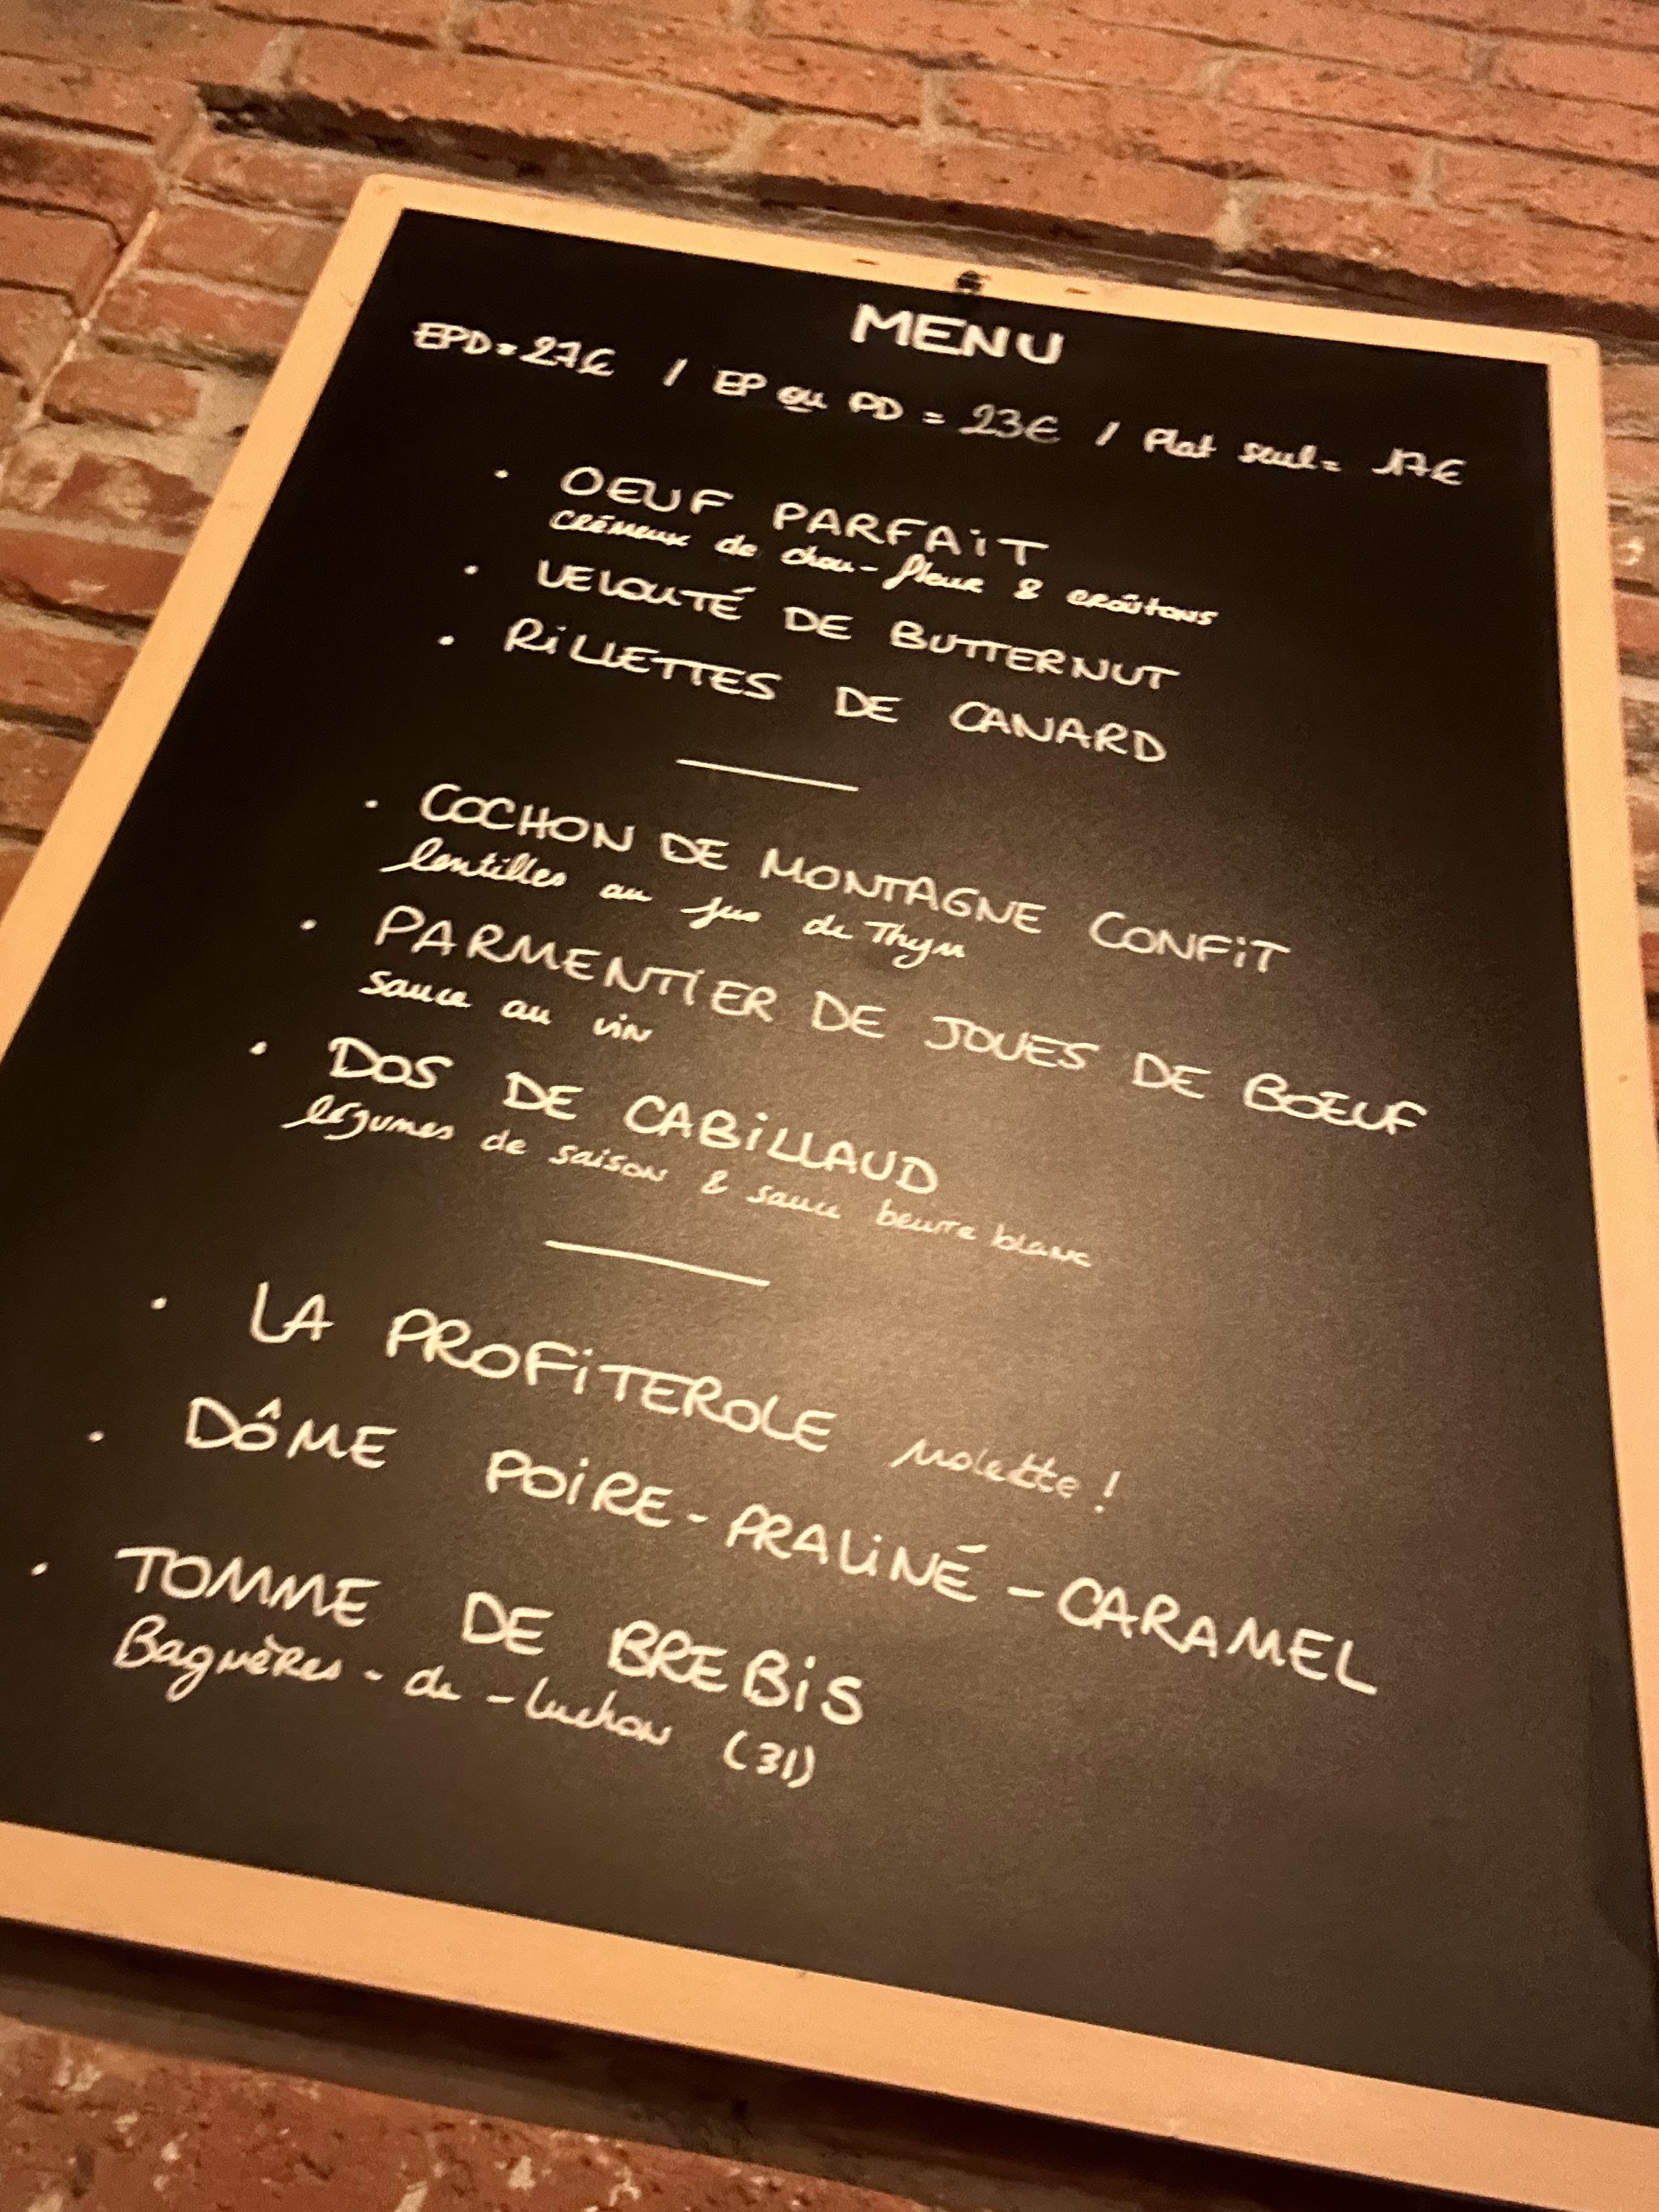 MENU
EPD=27€ / EP ou PD = 23€ / Plat seul= 17€
• OEUF PARFAiT
crémeux de chou-fleur & croûtons
• VELOUTÉ DE BUTTERNUT
• RiLLETTES DE CANARD
• COCHON DE MONTAGNE CONFiT
lentilles au jus de Thym
• PARMENTIER DE JOUES DE BOEUF
sauce au vin
• DOS DE CABiLLAUD
légumes de saison & sauce beurre blanc
• LA PROFiTEROLE Molette !
• DÔME POiRE-PRALiNÉ-CARAMEL
• TOMME DE BREBiS
Bagnères-de-Luchon (31)